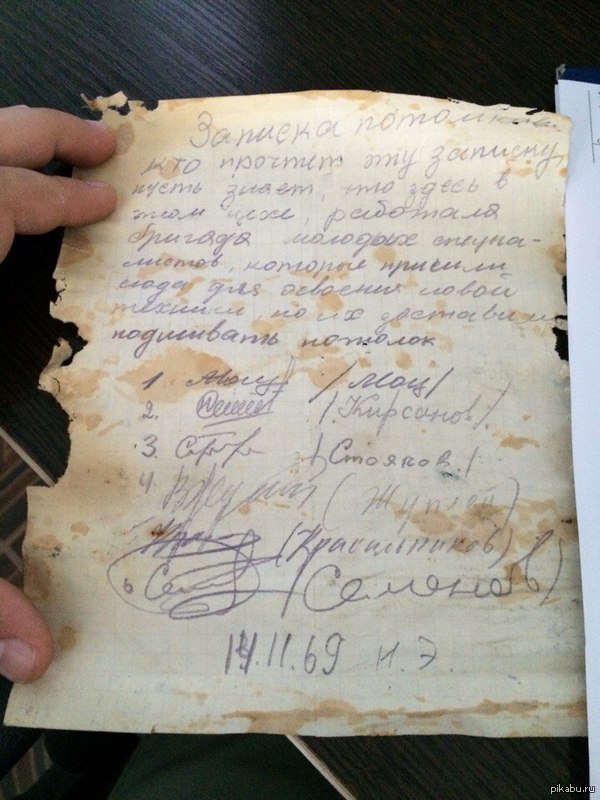 Записка потомкам
кто прочтет эту записку
пусть знает, что здесь в
этом цехе, работала
бригада молодых специа-
листов, которые пришли
сюда для освоения новой
техники, но их заставили
подшивать потолок
1. /Мац/
2. /Кирсанов/
3. /Стояков/
4. (Жуплей)
(Красильников)
6 (Семенов)
14.11.69 н.э.
pikabu.ru